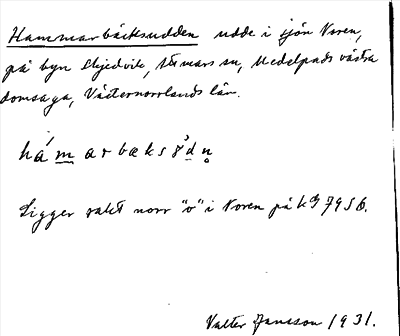 Hammarbäcksudden udde i sjön Noren,
på byn Skjedvik, Stmars sn, Medelpads västra
domsaga, Västernorrlands län.
hámarbæks
Ligger rakt norr "o" i Noren på kg 7956.
Valter Jansson 1931.